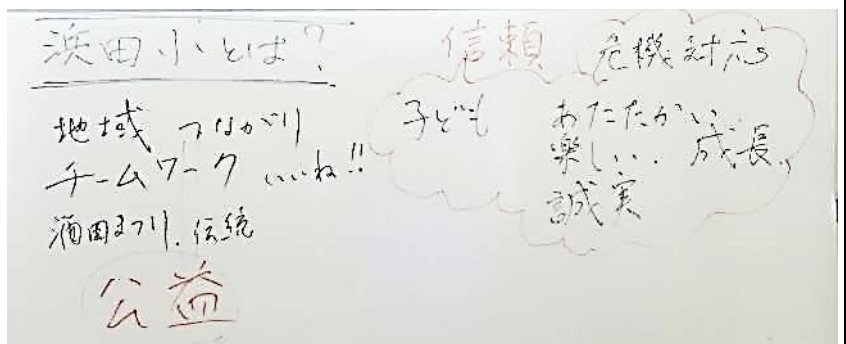 浜田小とは?
地域 つながり
チームワーク いいね!!
酒田まつり、伝統
公益
信頼 危機対応
子ども あたたかい、
楽しい、成長、
誠実